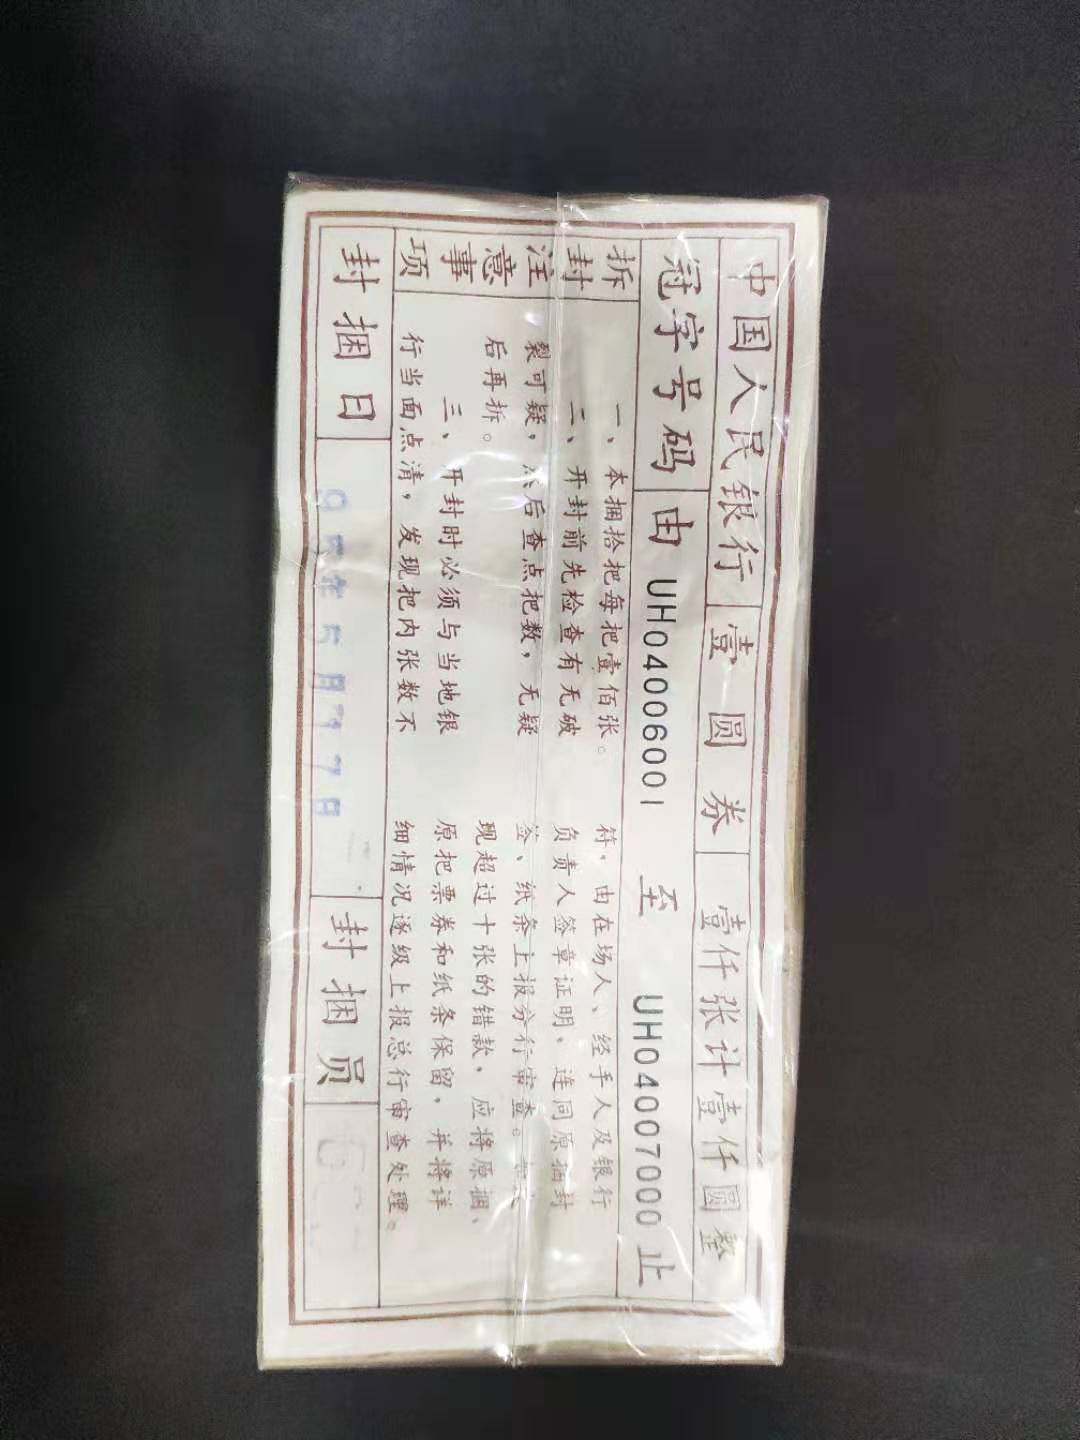 中国人民银行 壹圆券 壹仟张计壹仟圆整
冠字号码 由 UH04006001 至 UH04007000 止
拆封注意事项
一、本捆拾把每把壹佰张。
二、开封前先检查有无破
裂可疑，然后查点把数，无疑
后再拆。
三、开封时必须与当地银
行当面点清，发现把内张数不
符，由在场人、经手人及银行
负责人签章证明，连同原捆封
签、纸条上报分行审查。
现超过十张的错款，应将原捆、
原把票券和纸条保留，并将详
细情况逐级上报总行审查处理。
封捆日 年 月 7日 封捆员